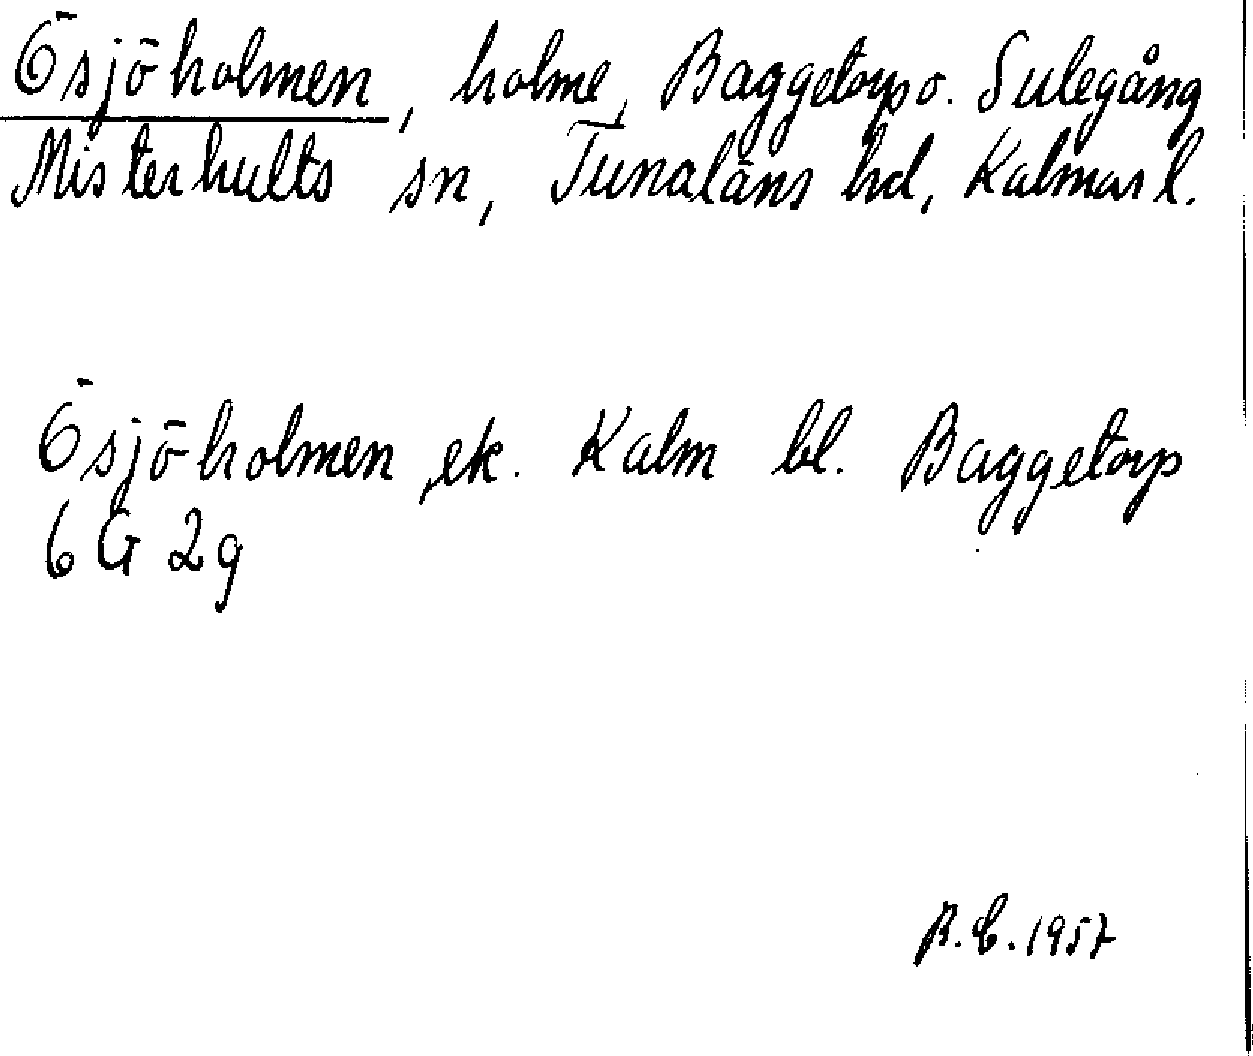 Ösjöholmen, holme, Baggetorp o. Sulegång
Misterhults sn, Tunaläns hd, Kalmar l.
Ösjöholmen, ek. Kalm bl. Baggetorp
6 G 2g
R.C. 1957